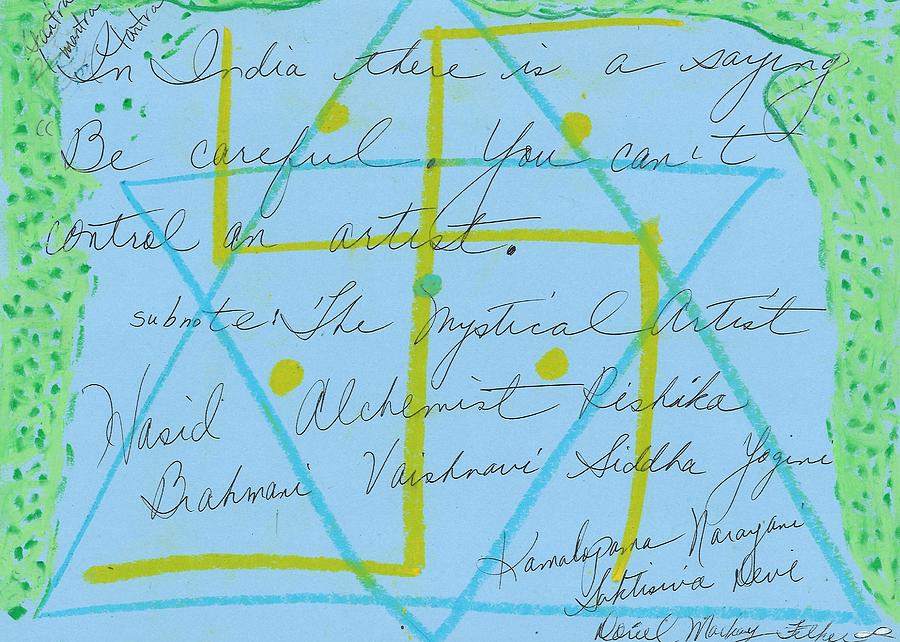 Yantra
mantra
Tantra
In India there is a saying
"Be careful. You can't
control an artist.
subnote: The Mystical Artist
Hasid Alchemist Rishika
Brahmani Vaishnavi Siddha Yogini
Kamalopama Narayani
Saktisiva Devi
Mackay